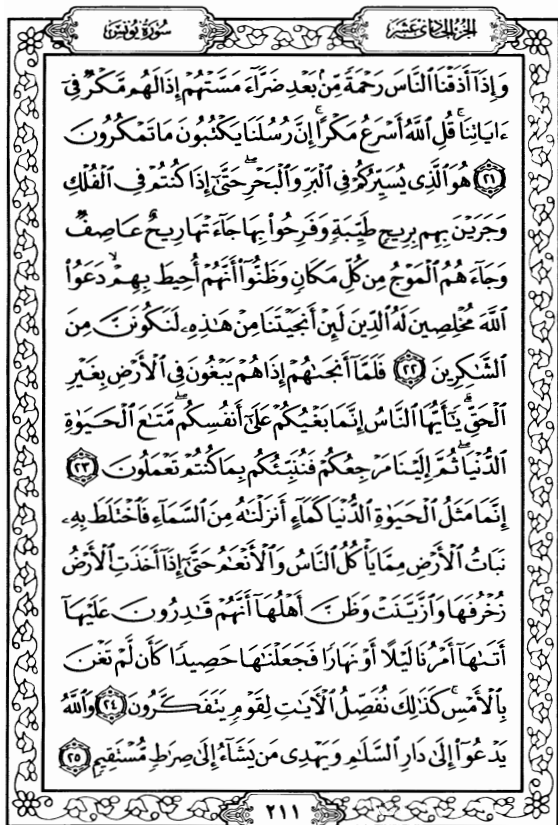 سُورَةُ يُونُسَ
الجُزءُ الحَادِي عَشَرَ
وَإِذَآ أَذَقْنَا ٱلنَّاسَ رَحْمَةً مِّنۢ بَعْدِ ضَرَّآءَ مَسَّتْهُمْ إِذَا لَهُم مَّكْرٌ فِىٓ
ءَايَاتِنَا ۚ قُلِ ٱللَّهُ أَسْرَعُ مَكْرًا ۚ إِنَّ رُسُلَنَا يَكْتُبُونَ مَا تَمْكُرُونَ
﴿٢١﴾ هُوَ ٱلَّذِى يُسَيِّرُكُمْ فِى ٱلْبَرِّ وَٱلْبَحْرِ ۖ حَتَّىٰٓ إِذَا كُنتُمْ فِى ٱلْفُلْكِ
وَجَرَيْنَ بِهِم بِرِيحٍ طَيِّبَةٍ وَفَرِحُوا۟ بِهَا جَآءَتْهَا رِيحٌ عَاصِفٌ
وَجَآءَهُمُ ٱلْمَوْجُ مِن كُلِّ مَكَانٍ وَظَنُّوٓا۟ أَنَّهُمْ أُحِيطَ بِهِمْ ۙ دَعَوُا۟
ٱللَّهَ مُخْلِصِينَ لَهُ ٱلدِّينَ لَئِنْ أَنجَيْتَنَا مِنْ هَـٰذِهِۦ لَنَكُونَنَّ مِنَ
ٱلشَّـٰكِرِينَ ﴿٢٢﴾ فَلَمَّآ أَنجَىٰهُمْ إِذَا هُمْ يَبْغُونَ فِى ٱلْأَرْضِ بِغَيْرِ
ٱلْحَقِّ ۗ يَـٰٓأَيُّهَا ٱلنَّاسُ إِنَّمَا بَغْيُكُمْ عَلَىٰٓ أَنفُسِكُم ۖ مَّتَـٰعَ ٱلْحَيَوٰةِ
ٱلدُّنْيَا ۖ ثُمَّ إِلَيْنَا مَرْجِعُكُمْ فَنُنَبِّئُكُم بِمَا كُنتُمْ تَعْمَلُونَ ﴿٢٣﴾
إِنَّمَا مَثَلُ ٱلْحَيَوٰةِ ٱلدُّنْيَا كَمَآءٍ أَنزَلْنَـٰهُ مِنَ ٱلسَّمَآءِ فَٱخْتَلَطَ بِهِۦ
نَبَاتُ ٱلْأَرْضِ مِمَّا يَأْكُلُ ٱلنَّاسُ وَٱلْأَنْعَـٰمُ حَتَّىٰٓ إِذَآ أَخَذَتِ ٱلْأَرْضُ
زُخْرُفَهَا وَٱزَّيَّنَتْ وَظَنَّ أَهْلُهَآ أَنَّهُمْ قَـٰدِرُونَ عَلَيْهَآ
أَتَىٰهَآ أَمْرُنَا لَيْلًا أَوْ نَهَارًا فَجَعَلْنَـٰهَا حَصِيدًا كَأَن لَّمْ تَغْنَ
بِٱلْأَمْسِ ۚ كَذَٰلِكَ نُفَصِّلُ ٱلْـَٔايَـٰتِ لِقَوْمٍ يَتَفَكَّرُونَ ﴿٢٤﴾ وَٱللَّهُ
يَدْعُوٓا۟ إِلَىٰ دَارِ ٱلسَّلَـٰمِ وَيَهْدِى مَن يَشَآءُ إِلَىٰ صِرَٰطٍ مُّسْتَقِيمٍ ﴿٢٥﴾
٢١١